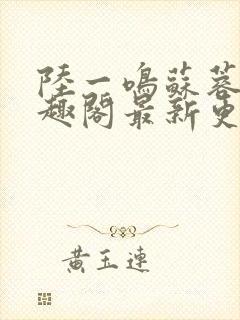 陸一鳴蘇蓉
趣閣最新更
黃玉連